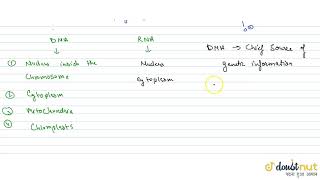 DNA
RNA
DNA → Chief Source of
genetic information
① Nucleus inside the
Chromosome
Nucleus
Cytoplasm
② Cytoplasm
③
④ Chloroplasts
doubtnut